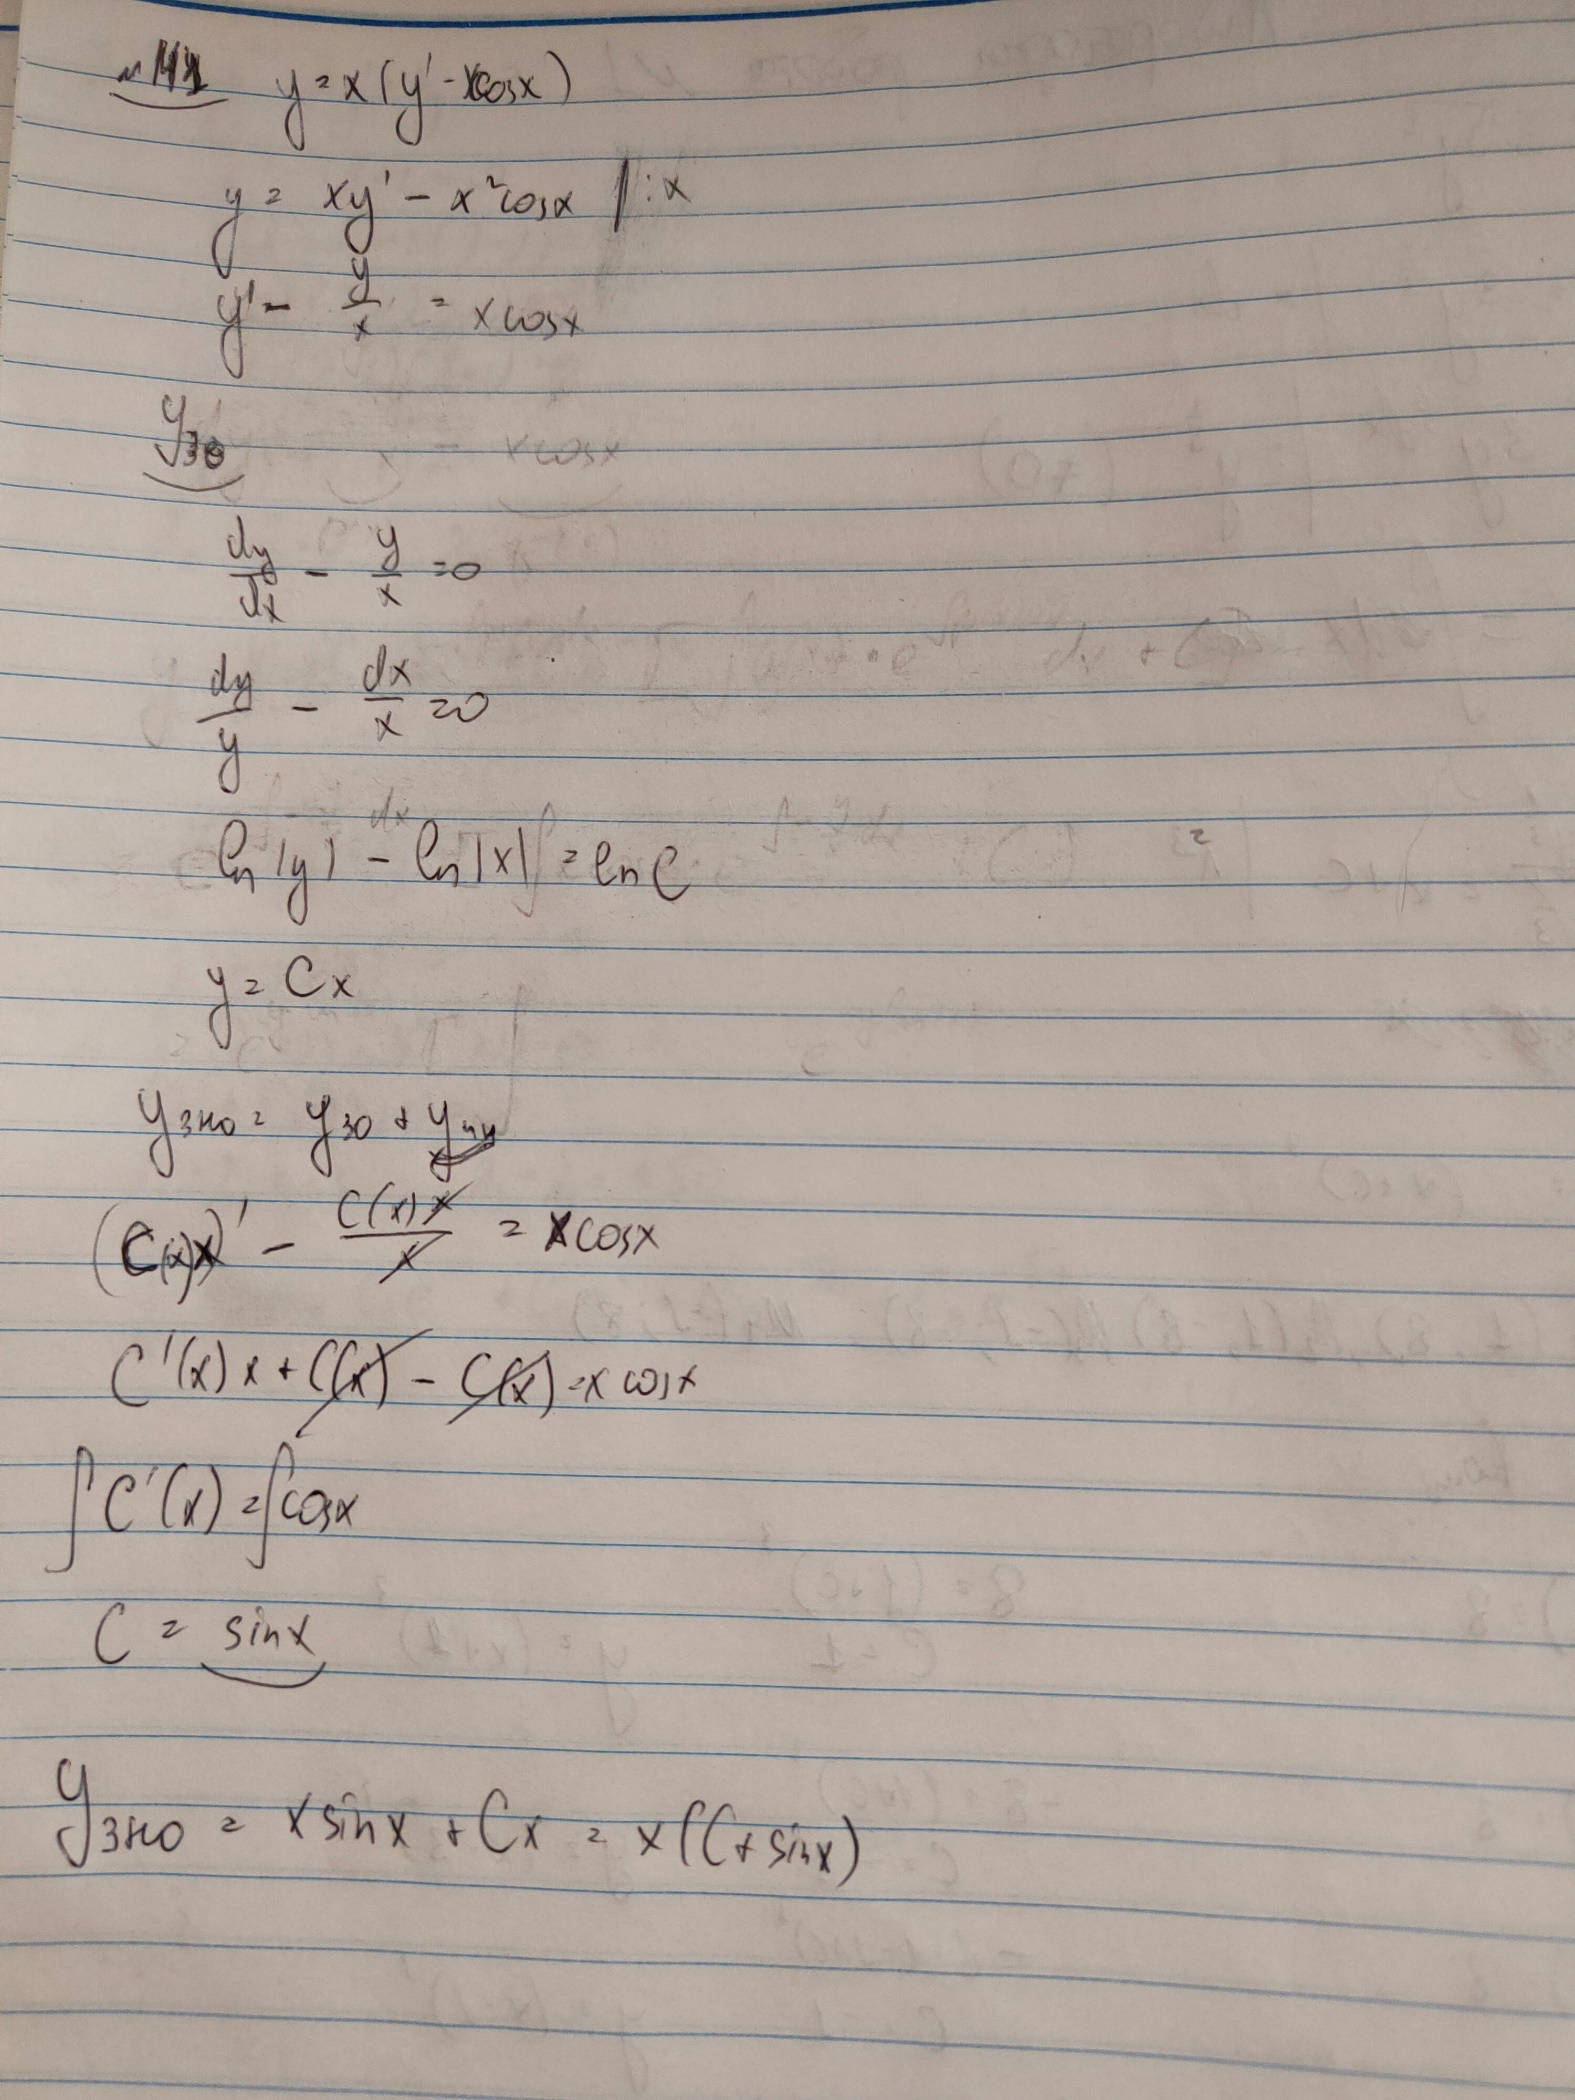 y = x(y' - xcosx)
y = xy' - x²cosx |:x
y' - y/x = xcosx
y₃₀
dy/dx - y/x = 0
dy/y - dx/x = 0
ln|y| - ln|x| = lnC
y = Cx
yзно = yзо + yчн
(C(x)x)' - C(x)x/x = xcosx
C'(x)x + C(x) - C(x) = x cosx
∫C'(x) = ∫cosx
C = sinx
yзно = xsinx + Cx = x(C + sinx)